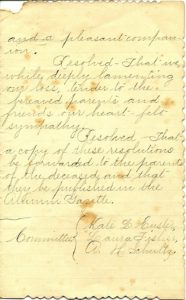 and a pleasant compan-
ion.
Resolved - That we,
while deeply lamenting
our loss, tender to the
bereaved parents and
friends our heart-felt
sympathy.
Resolved - That
a copy of these resolutions
be forwarded to the parents
of the deceased, and that
they be published in the
Gazette.
Kate L.
Committee Laura Fisher